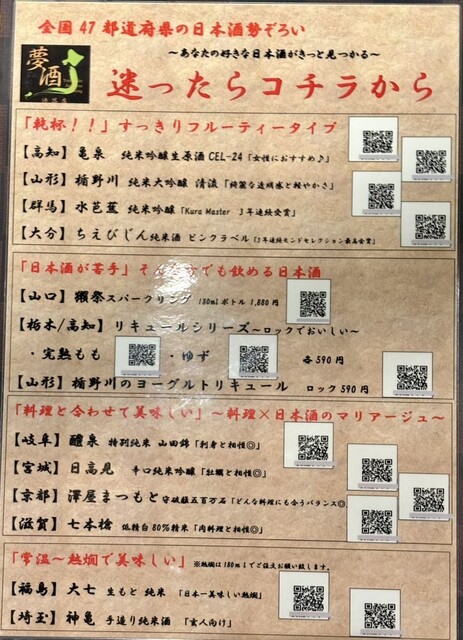 全国47都道府県の日本酒勢ぞろい
夢酒
～あなたの好きな日本酒がきっと見つかる～
迷ったらコチラから
「乾杯！！」すっきりフルーティータイプ
【高知】亀泉 純米吟醸生原酒 CEL-24「女性におすすめ♪」
【山形】楯野川 純米大吟醸 清流「綺麗な透明感と軽やかさ」
【群馬】水芭蕉 純米吟醸「Kura Master 3年連続受賞」
【大分】ちえびじん 純米酒 ピンクラベル「3年連続モンドセレクション最高金賞」
「日本酒が苦手」そ でも飲める日本酒
【山口】獺祭スパークリング 180mlボトル 1,880円
【栃木/高知】リキュールシリーズ～ロックでおいしい～
・完熟もも ・ゆず 各590円
【山形】楯野川のヨーグルトリキュール ロック590円
「料理と合わせて美味しい」～料理×日本酒のマリアージュ～
【岐阜】醴泉 特別純米 山田錦「刺身と相性◎」
【宮城】日高見 辛口純米吟醸「牡蠣と相性◎」
【京都】澤屋まつもと 守破離五百万石「どんな料理にも合うバランス◎」
【滋賀】七本槍 低精白80%精米「肉料理と相性◎」
「常温～熱燗で美味しい」 ※熱燗は180mlでご注文お願い致します。
【福島】大七 生もと 純米 「日本一美味しい熱燗」
【埼玉】神亀 手造り純米酒 「玄人向け」